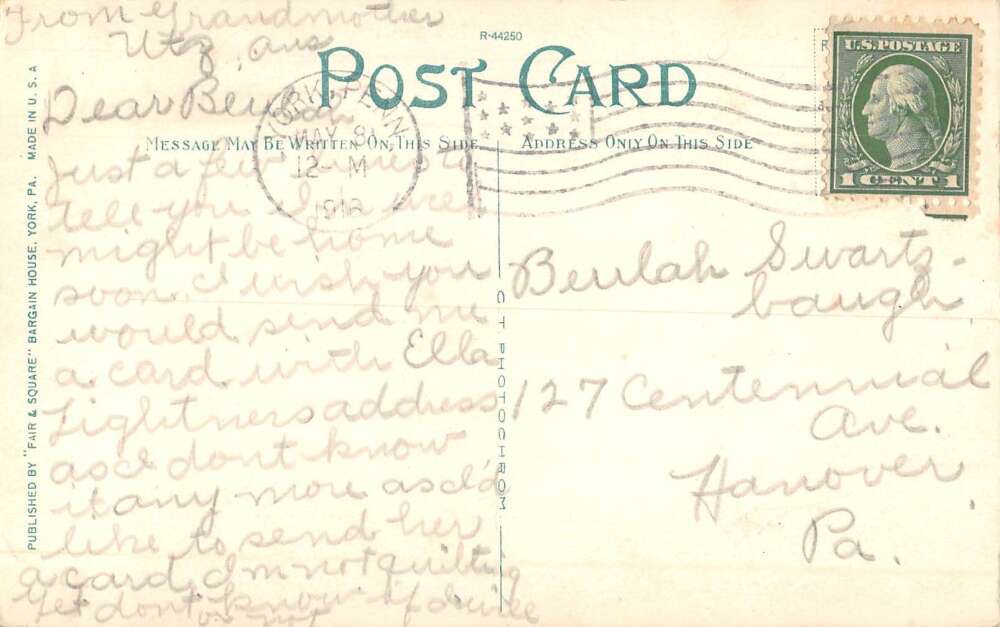 From Grandmother
Utz, ans
R-44250
POST CARD
Dear Beulah
YORK, PENN
MAY 8
12-M
MESSAGE MAY BE WRITTEN ON THIS SIDE
ADDRESS ONLY ON THIS SIDE
U.S. POSTAGE
1 CENT 1
Just a few lines to
tell you I'm well
might be home
soon. I wish you
would send me
a card with Ella
Lightners address
as I dont know
it any more as I'd
like to send her
a card, I'm not quilting
yet dont know if I will
or not
Beulah Swarts-
baugh
127 Centennial
Ave.
Hanover
Pa.
C. T. PHOTOCHROM
PUBLISHED BY "FAIR & SQUARE" BARGAIN HOUSE, YORK, PA. MADE IN U. S. A